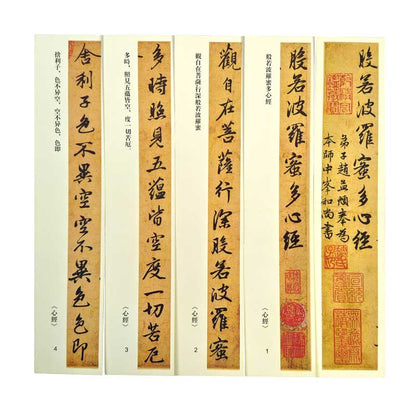 般若波羅蜜多心經
弟子趙孟頫奉為
本師中峯和尚書
般若波羅蜜多心經
般若波羅蜜多心經
《心經》
1
觀自在菩薩行深般若波羅蜜
觀自在菩薩,行深般若波羅蜜
《心經》
2
多時照見五蘊皆空度一切苦厄
多時,照見五蘊皆空,度一切苦厄。
《心經》
3
舍利子色不異空空不異色色即
捨利子,色不异空,空不异色,色即
《心經》
4